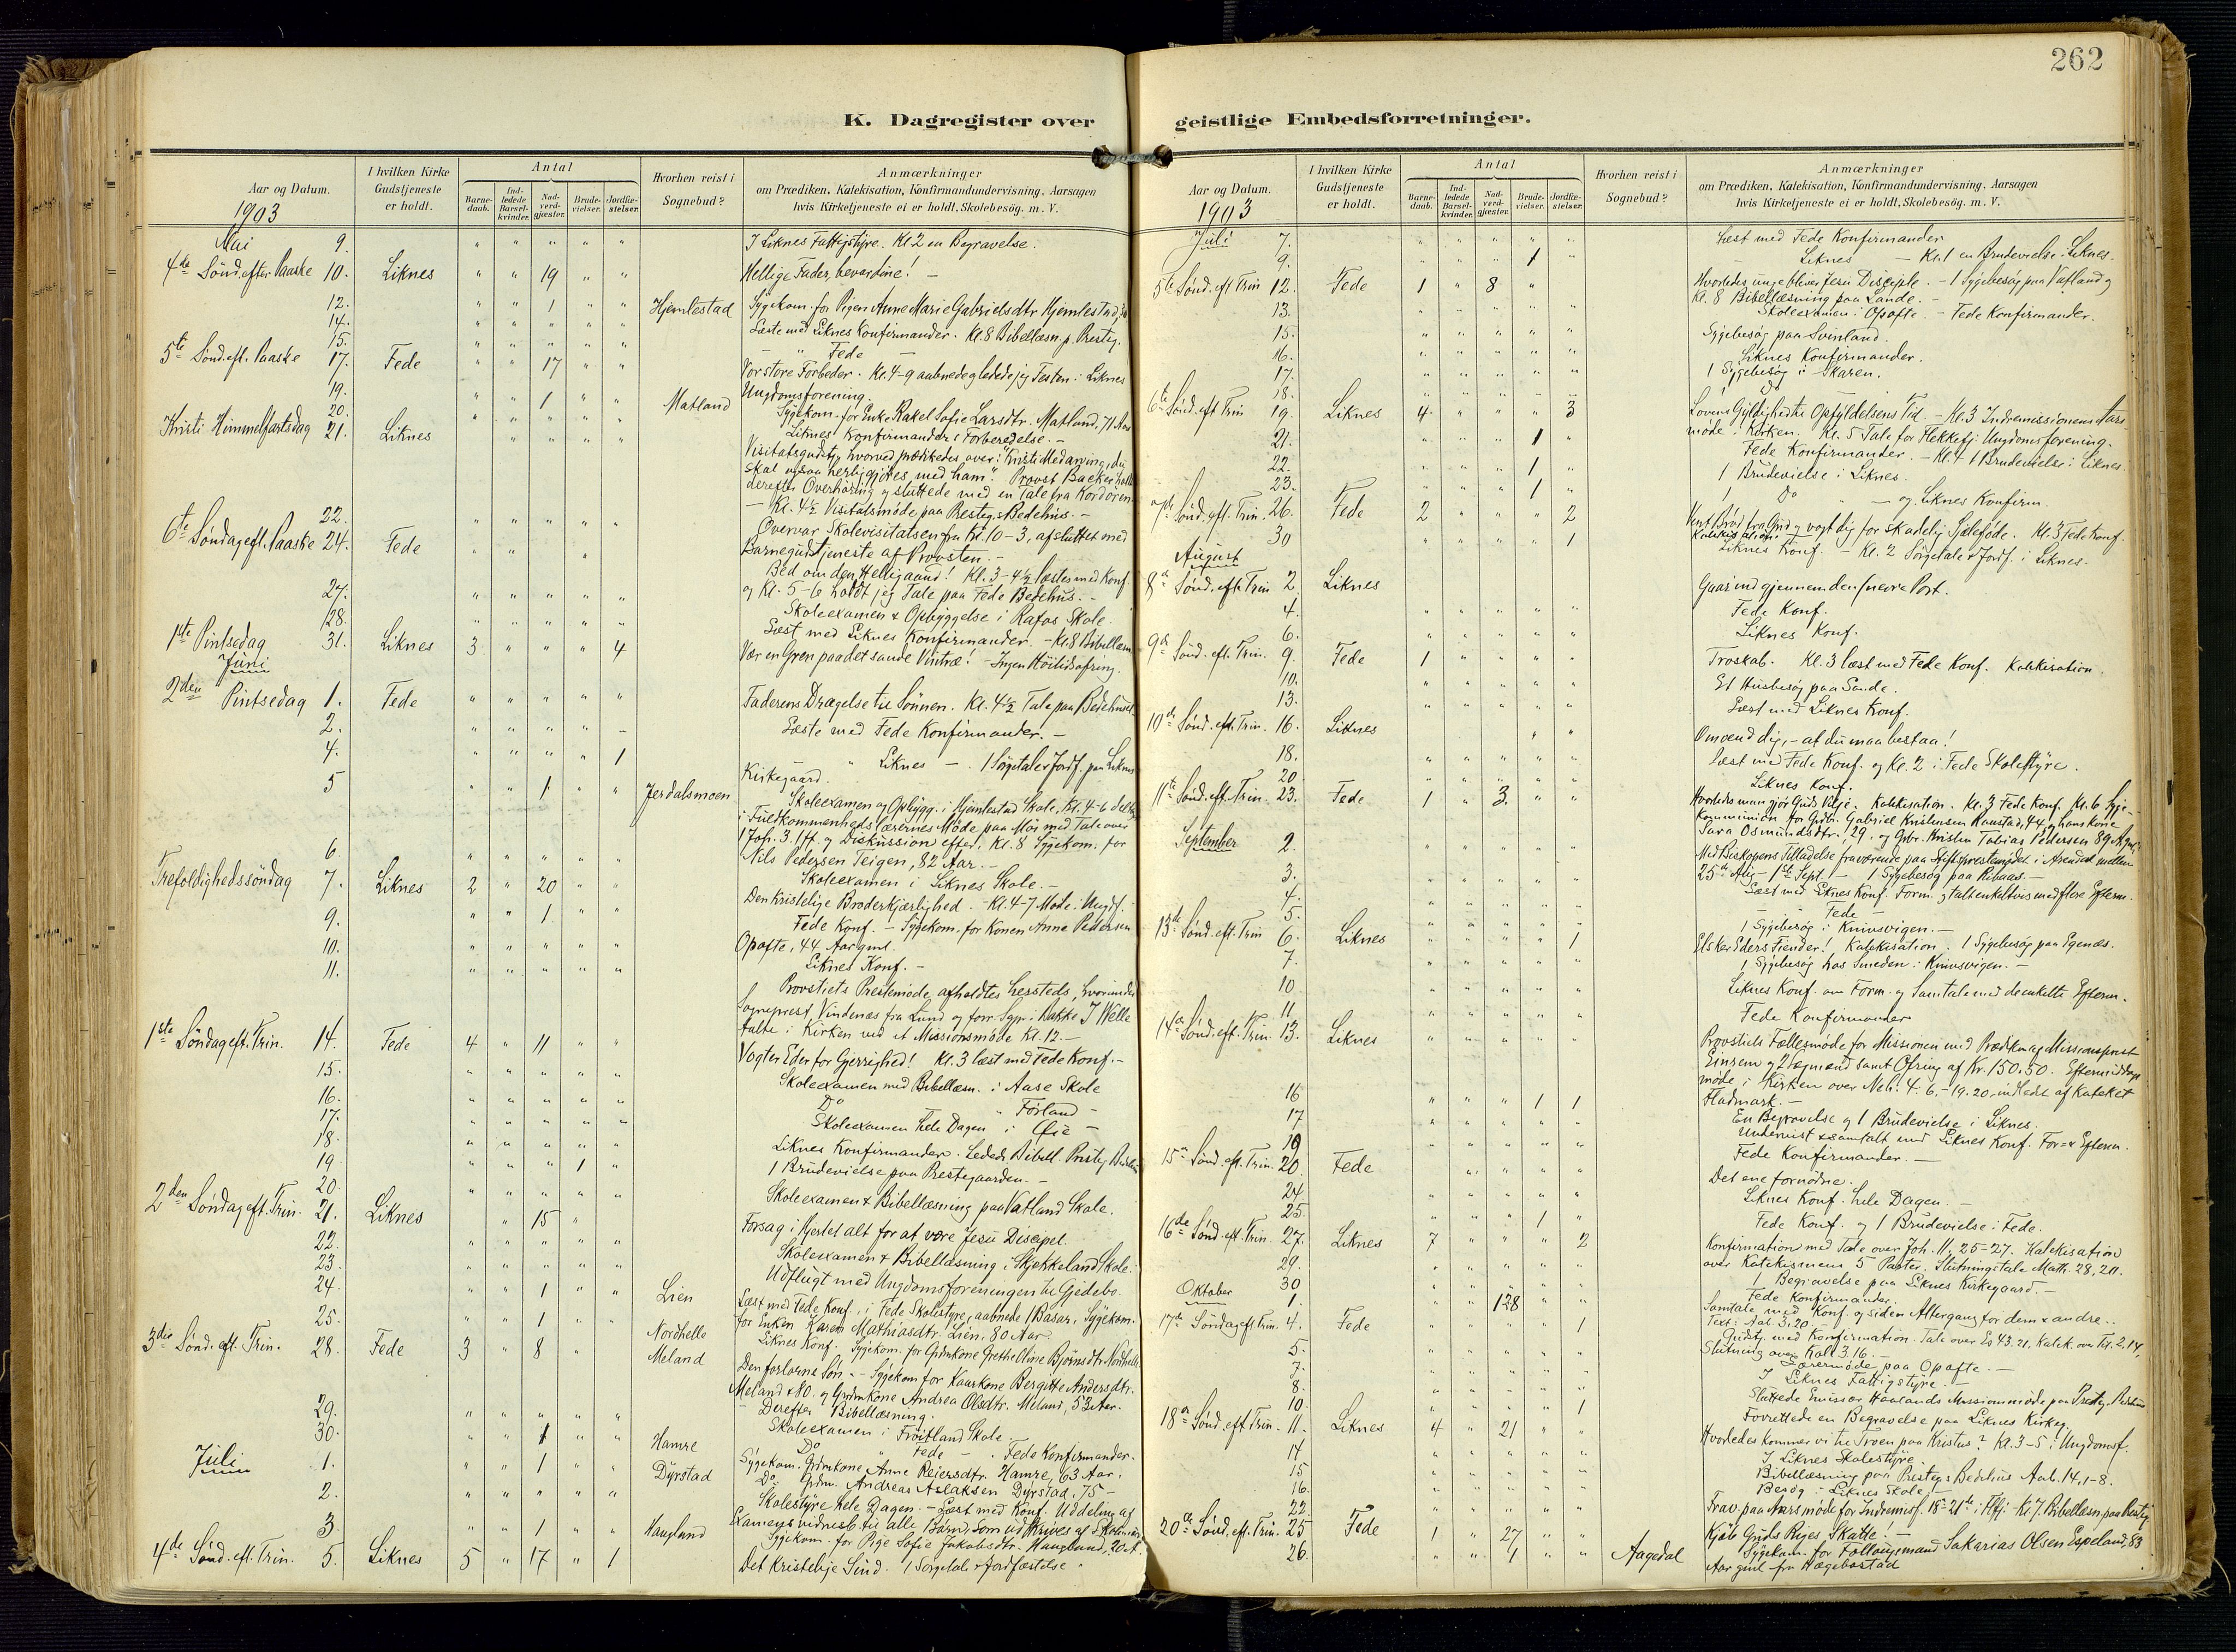 262
K. Dagregister over
geistlige Embedsforretninger.
Aar og Datum.
1903
I hvilken Kirke Gudstjeneste er holdt.
Antal
Barnedaab.
Indledede Barselkvinder.
Nadverdgjæster.
Brudevielser.
Jordfæstelser.
Hvorhen reist i Sognebud?
Anmærkninger
om Prædiken, Katekisation, Konfirmandundervisning, Aarsagen
hvis Kirketjeneste ei er holdt, Skolebesøg m. V.
Mai 9. " " " " " I Liknes Fattigstyre. Kl. 2 en Begravelse.
4de Sönd. efter Paaske 10. Liknes " " 19 " " Hellige Fader, bevar dine! -
12. " " 1 " " Hjemlestad Sygekom. for Pigen Anne Marie Gabrielsdtr Hjemlestad,
14. " " " " " Læste med Liknes Konfirmander. Kl. 8 Bibellæsn. p. Presteg.
15. " " " " " - " Fede -
5te Sönd. eft. Paaske 17. Fede " " 17 " " Vor store Forbeder. Kl. 4-9 aabnede og ledede jeg Festen i Liknes
Ungdomsforening.
19. " " 1 " " Matland Sygekom. for Enke Rakel Sofie Larsdtr. Matland, 71 Aar
20. " " " " " Liknes Konfirmanders Forberedelse. -
Kristi Himmelfartsdag 21. Liknes " " " " Visitatsgudstj. hvorved prædikedes over: "Kristi Medarving, du
skal ogsaa herliggjöres med ham". Provst Backer holdt
derefter Overhöring og sluttede med en Tale fra Kordören.
- Kl. 4½ Visitatsmöde paa Presteg.s Bedehus. -
22. " " " " " Overvar Skolevisitatsen fra Kl. 10-3, afsluttet med
Barnegudstjeneste af Provsten. -
6te Söndag eft. Paaske 24. Fede " " " Bed om den Helligaand! Kl. 3-4½ læstes med Konf.
og Kl. 5-6 holdt jeg Tale paa Fede Bedehus. -
27. " " " " " Skoleexamen & Opbyggelse i Rafos Skole.
28. " " " " " Læst med Liknes Konfirmander. - Kl. 8 Bibellæsn.
1ste Pintsedag 31. Liknes 3 " " " 4 Vær en Gren paa det sande Vintræ! - Ingen Höitidsofring.
Juni
2den Pintsedag 1. Fede " " " " " Faderens Dragelse til Sönnen. Kl. 4½ Tale paa Bedehuset
2. " " " " " Læste med Fede Konfirmander. -
4. " " " " 1 " Liknes - . 1 Sörgetale & Jordf. paa Liknes
Kirkegaard.
5 " " 1 " " Jerdalsmoen Skoleexamen og Opbygg. i Hjemlestad Skole, Kl. 4-6 deltog
i Fuldkommenhedslærernes Möde paa Moi med Tale over
1 Joh. 3.1ff. og Diskussion efter. Kl. 8 Sygekom. for
Nils Pedersen Teigen, 82 Aar. -
6. " " " " " Skoleexamen i Liknes Skole. -
Trefoldighedssöndag 7. Liknes 2 " 20 " " Den kristelige Broderkjærlighed. - Kl. 4-7 Möde i Ungdf.
9. " " 1 " " Fede Konf. - Sygekom. for Konen Anne Pedersen
Opofte, 44 Aar gml.
10. " " " " " Liknes Konf. -
11. " " " " " Provstiets Prestemöde afholdtes hersteds, hvorunder
Sogneprest Vindenæs fra Lund og forr. Sgpr. i Bakke J Welle
talte i Kirken ved et Missionsmöde Kl. 12. -
1ste Söndag eft. Trin. 14. Fede 4 " 11 " " Vogter Eder for Gjerrighed! Kl. 3 læst med Fede Konf. -
15. " " " " " Skoleexamen med Bibellæsn. i Aase Skole
16. " " " " " Do " Förland -
17. " " " " " Skoleexamen hele Dagen i Öie -
18. " " " " " Liknes Konfirmander. Lededs Bibell. Presteg. Bedehus
19 " " " 1 " 1 Brudevielse paa Prestegaarden. -
20. " " " " " Skoleexamen & Bibellæsning paa Vatland Skole.
2den Söndag eft. Trin. 21. Liknes " 15 " Forsag i Hjertet alt for at være Jesu Discipel.
22. " " " " " Skoleexamen & Bibellæsning i Skjekkeland Skole.
23 " " " " " Udflugt med Ungdomsforeningen til Gjedebo.
24 " " 1 " " Lien Læst med Fede Konf., i Fede Skolestyre, aabnede 1 Basar, Sygekom.
for Enken Karen Mathiasdtr. Lien, 80 Aar.
25. " " 1 " " Nordhelle Liknes Konf. Sygekom. for Grdmkone Grethe Oline Björnsdtr Nordhelle
3die Sönd. eft. Trin. 28. Fede 3 " 8 " " Meland Den forlorne Sön. - Sygekom for Kaarkone Bergitte Andersdtr.
Meland, 80, og Grdmkone Andrea Olsdtr. Meland, 53 Aar.
- Derefter Bibellæsning.
29. " " " " " Skoleexamen i Fröitland Skole.
30. " " 1 " " Hamre Do " Fede - . Fede Konfirmander.
Juli 1. " " 1 " " Dyrstad Sygekom. Grdmkone Anne Reiersdtr. Hamre, 63 Aar.
Do Grdm. Andreas Aslaksen Dyrstad, 75 -
2. " " " " " Skolestyre hele Dagen. - Læst med Konf. Uddeling af
Examensvidnesb. til alle Börn, som udskrives af Skolen.
3. " " 1 " " Haugland Sygekom. for Pige Sofie Jakobsdtr. Haugland, 20 A.
4de Sönd. eft. Trin. 5. Liknes 5 " 17 " 1 Det Kristelige Sind. 1 Sörgetale & Jordfæstelse.
Aar og Datum.
1903
I hvilken Kirke Gudstjeneste er holdt.
Antal
Barnedaab.
Indledede Barselkvinder.
Nadverdgjæster.
Brudevielser.
Jordfæstelser.
Hvorhen reist i Sognebud?
Anmærkninger
om Prædiken, Katekisation, Konfirmandundervisning, Aarsagen
hvis Kirketjeneste ei er holdt, Skolebesøg m. V.
Juli 7. " " " " " Læst med Fede Konfirmander
9. " " " 1 " - Liknes - Kl. 1 en Brudevielse i Liknes.
5te Sönd. eft Trin 12. Fede 1 " 8 " Hvorledes unge bliver Jesu Disciple. - 1 Sygebesög paa Vatland og
Kl. 8 Bibellæsning paa Sande. -
13. " " " " " Skoleexamen i Opofte. - Fede Konfirmander.
15. " " " " " Sygebesög paa Svinland.
16. " " " " " Liknes Konfirmander.
17. " " " " " 1 Sygebesög i Skaren.
18. " " " " " 1 Do
6te Sönd. eft Trin 19. Liknes 4 " " " 3 Lovens Gyldighed til Opfyldelsens Tid. - Kl. 3 Indremissionens Aarsmöde
i Kirken. Kl. 5 Tale for Flekkefj. Ungdomsforening.
21. " " " 1 " Fede Konfirmander. - Kl. 4 1 Brudevielse i Liknes.
22. " " " 1 " 1 Brudevielse i Liknes.
23. " " " 1 " 1 Do - og Liknes Konfirm.
7de Sönd. eft. Trin. 26. Fede 2 " " " 2 Vent Bröd fra Gud og vogt dig for skadelig Sjæleföde. Kl. 3 Fede Konf.
Katekisation.
30 " " " " 1 Liknes Konf. - Kl. 2 Sörgetale & Jordf. i Liknes.
August
8de Sönd. eft. Trin 2 Liknes Gaar ind gjennem den snevre Port.
4. " " " " " Fede Konf.
6. " " " " " Liknes Konf.
9de Sönd. eft. Trin. 9. Fede 1 " " " " Troskab. Kl. 3 læst med Fede Konf. Katekisation.
10. " " " " " Et Husbesög paa Sande.
13. " " " " " Læst med Liknes Konf.
10de Sönd. eft. Trin. 16. Liknes " " Omvend dig, - at du maa bestaa!
18. " " " " " Læst med Fede Konf. og Kl. 2 i Fede Skolestyre.
20 " " " " " Liknes Konf.
11te Sönd. eft. Trin. 23. Fede 1 " 3 " " Hvorledes man gjör Guds Vilje. Katekisation. Kl. 3 Fede Konf. Kl. 6 Sygekommunion
for Grdbr. Gabriel Kristensen Raustad, 44, og hans kone
Sara Osmundsdtr., 29, og Gbr. Kristen Tobias Pedersen 89
September 2. Med Biskopens Tilladelse fraværende paa Stiftsprestemödet i Arendal mellem
25de Aug - 1ste Sept. - 1 Sygebesög paa Risaas. -
3. " " " " " Læst med Liknes Konf. Form. og talt enkeltvis med flere Efterm.
4. " " " " " - Fede -
5. " " " " " 1 Sygebesög i Knivsvigen. -
13de Sönd. eft. Trin 6. Liknes " " " " 1 Elsker Eders Fiender! Katekisation. 1 Sygebesög paa Egenæs.
7. " " " " " 1 Sygebesög hos Smeden i Knivsvigen. -
10 " " " " " Liknes Konf. om Form. og Samtale med de enkelte Efterm.
11 " " " " " Fede Konfirmander
14de Sönd. eft. Trin 13. Liknes " " " " " Provstiets Fællesmöde for Missionen med Prædiken af Missionsprest
Einrem og 2 lægmænd samt Ofring af Kr. 150.50. Eftermiddagsmöde
i Kirken over Neh. 4. 6. - 19. 20, indledet af Kateket
Fladmark. -
16 " " " 1 1 En Begravelse og 1 Brudevielse i Liknes.
17 " " " " " Undervist & samtalt med Liknes Konf. For= & Efterm.
19 " " " " " Fede Konfirmander. -
15de Sönd. eft. Trin. 20. Fede " " " " Det ene fornödne.
24. " " " " " Liknes Konf. hele Dagen. -
25. " " " 1 " Fede Konf. og 1 Brudevielse i Fede.
16de Sönd. eft. Trin. 27. Liknes 7 " " " 2 Konfirmation med Tale over Joh. 11, 25-27. Katekisation
over Katekismens 5 Parter. Slutningstale Math. 28, 20.
29. " " " " " 1 Begravelse paa Liknes Kirkegaard. -
30 " " " " " Fede Konfirmander.
Oktober 1. " " 128 " " Samtale med Konf. og siden Altergang for dem & andre.
Text: Aab. 3.20. -
17de Söndag eft Trin. 4. Fede " " " " 1 Gudstj. med Konfirmation. Tale over Es 43.21, Katek. over Tit. 2,14,
Slutning over Kol. 3.16. -
5. " " " " " Lærermöde paa Opofte. -
7. " " " " " I Liknes Fattigstyre. -
8. " " " " " Sluttede Emissær Haalands Missionsmöde paa Presteg. Bedehus
10. " " " " 1 Forrettede en Begravelse paa Liknes Kirkeg.
18de Sönd. eft Trin. 11. Liknes 4 " 21 " " Hvorledes kommer vi til Troen paa Kristus? Kl. 3-5 i Ungdomsf.
14 " " " " " I Liknes Skolestyre.
15 " " " " " Bibellæsning paa Presteg.s Bedehus Aab. 14,1-8.
16. " " " " " Besög i Liknes Skole! -
22 " " " " " Frav. paa Aarsmöde for Indremisf. 18-21de i Flfj. Kl. 7 Bibellæsn. paa Presteg.
20de Sönd. eft. Trin. 25 Fede 1 " 27 " " Kjöb Guds Riges Skatte! -
26. " " 1 " " Aagedal Sygekom. for Fattigmand Sakarias Olsen Espeland, 83
Aar gml fra Hægebostad